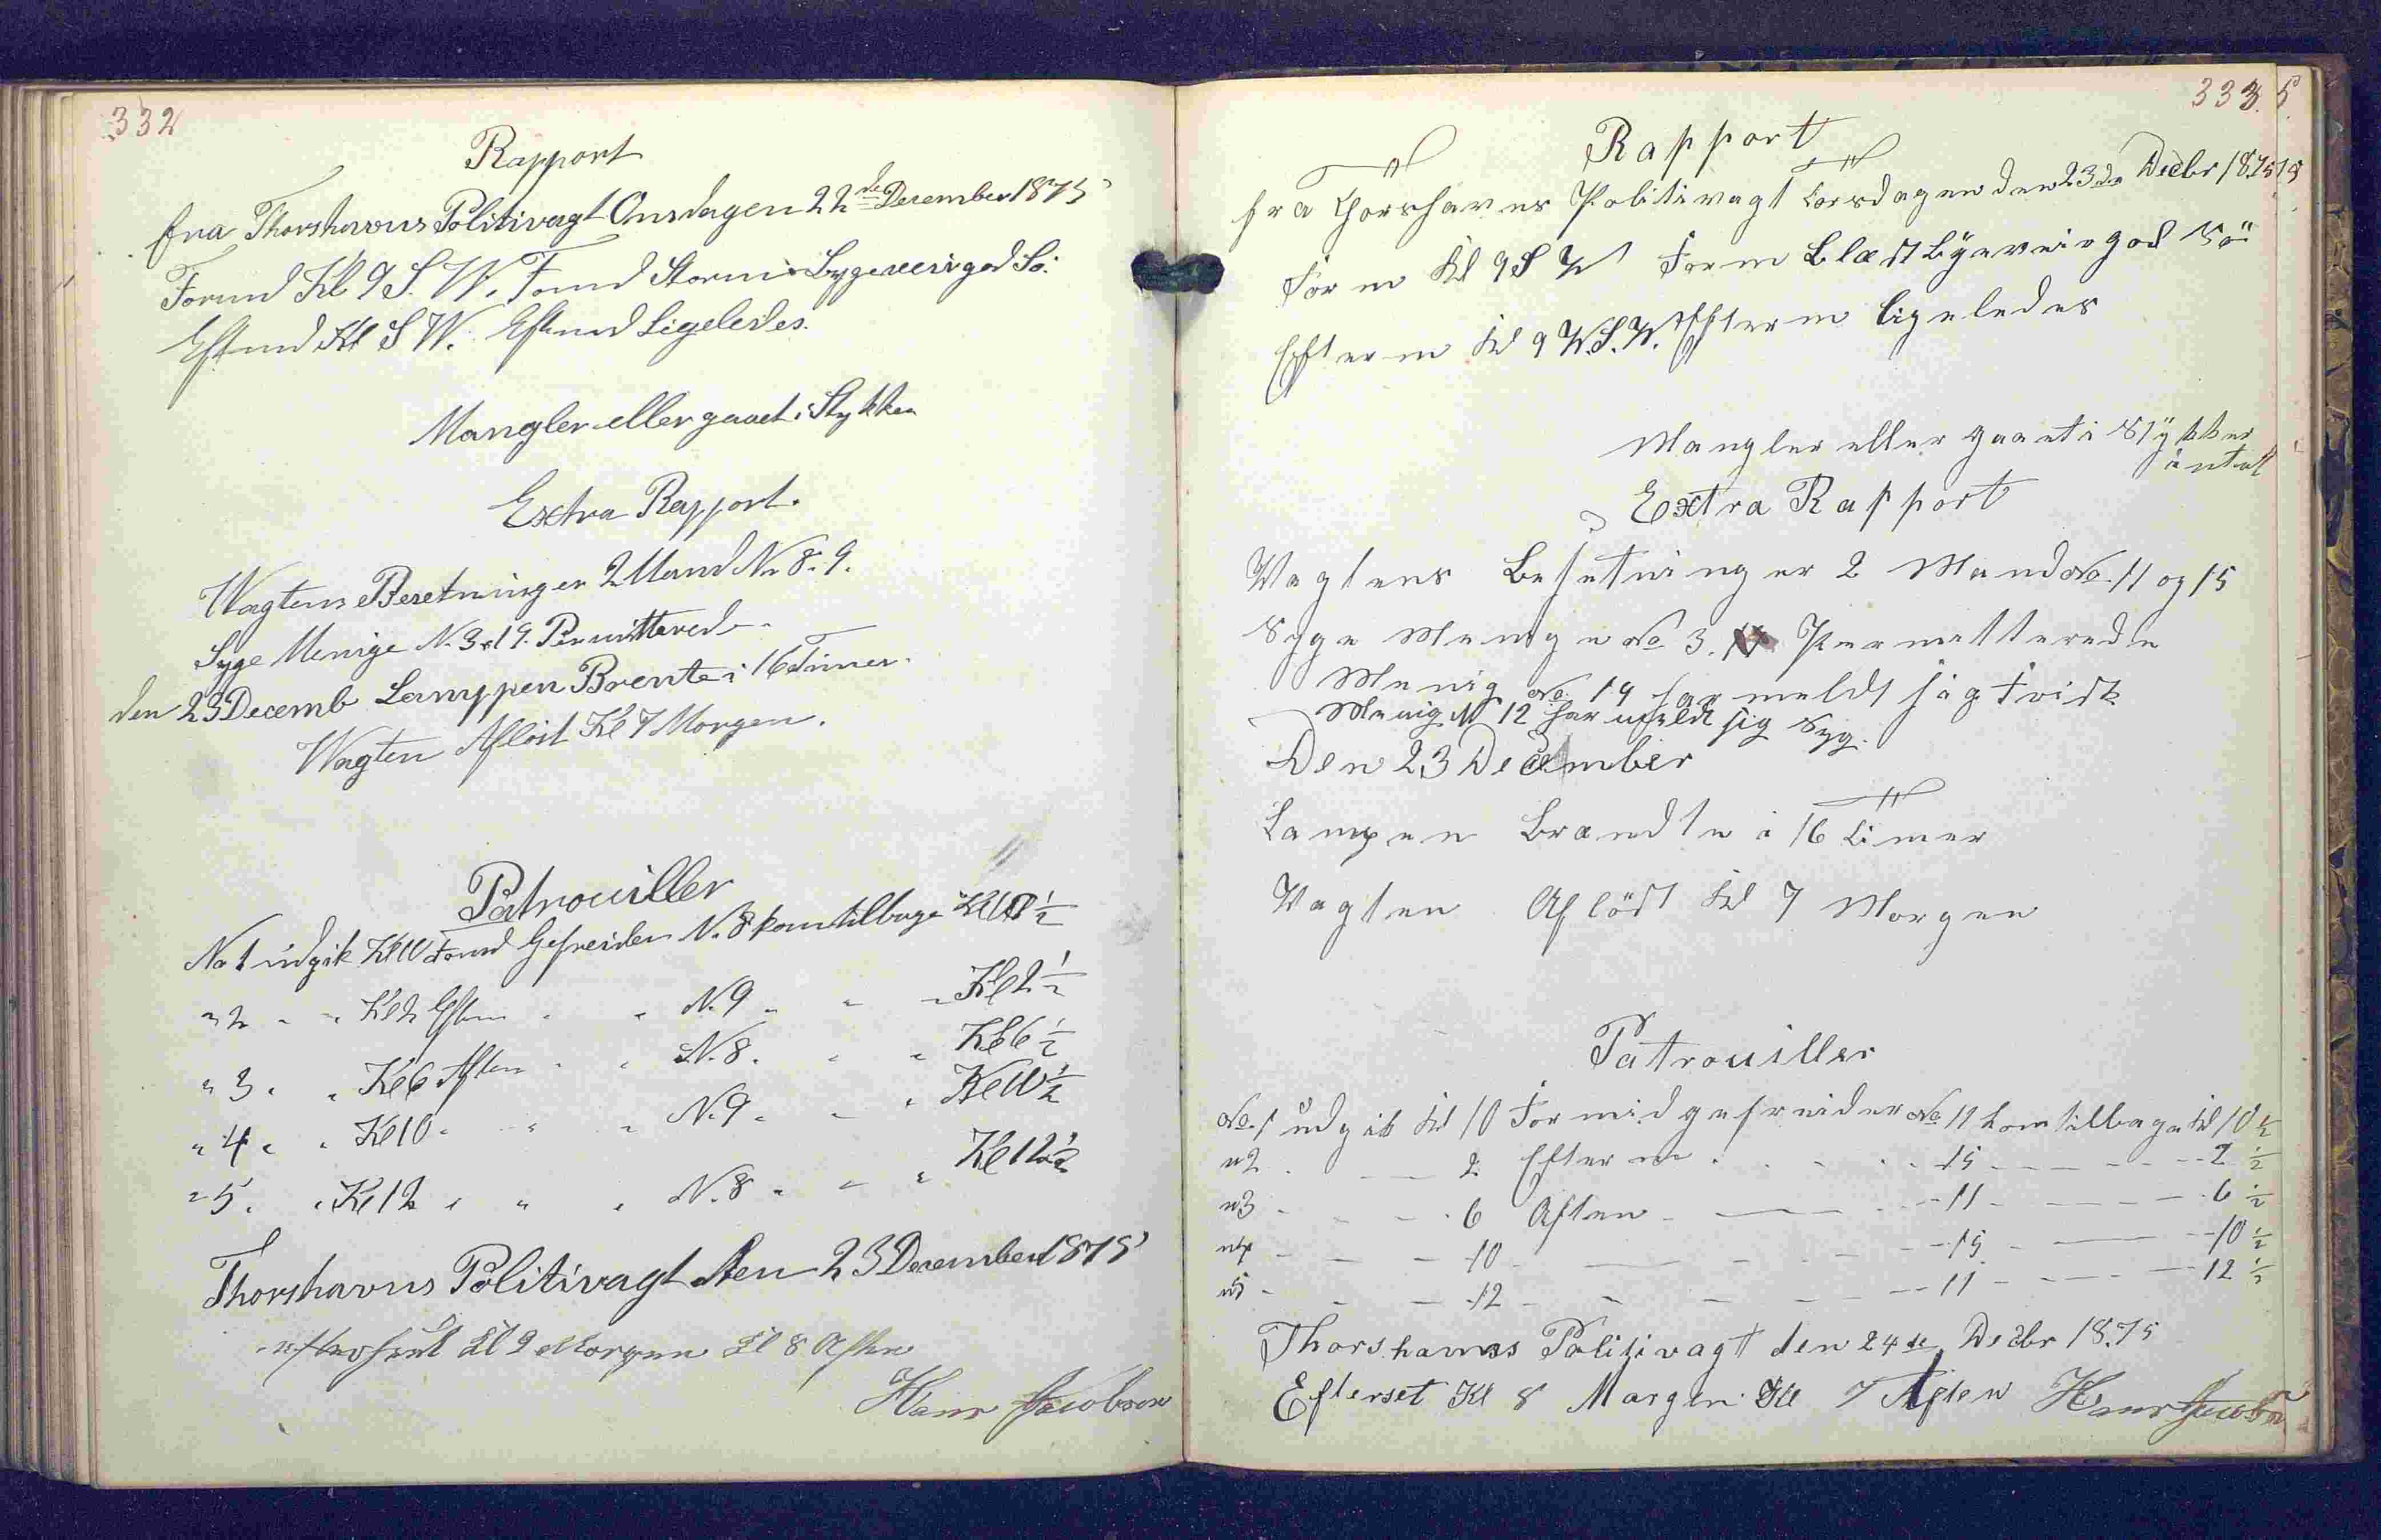 332
Rapport
fra Thorshavns Politivagt Onsdagen 22de December 1875
Formd Kl 9 S. W. Formd Storm Bygeveir god Sö.
Eftmd Kl S W. Eftmd Ligeledes.
Mangler eller gaaet i Stykker
Extra Rapport.
Wagtens Besetning er 2 Mand No 8. 9.
Syge Menige N. 3 19. Permitterede
den 23 Decemb Lamppen Brente i 16 Timer.
Wagten Aflöst Kl 7 Morgen.
Patrouiller
No 1 udgik Kl 10 Formd Gefreider N. 8 kom tilbage Kl 10 1/2
" 2 " " Kl 2 Eftm " " N. 9 " " " Kl 2 1/2
" 3 " " Kl 6 Aften " " N. 8. " " Kl 6 1/2
" 4 " " Kl 10 " " " N. 9 " " " Kl 10 1/2
" 5. " Kl 12 " " " N. 8 " " " Kl 12 1/2
Thorshavns Politivagt den 23 December 1875
efterseet Kl 9 Morgen Kl 8 Aften
Hans Jacobsen
333. 5
Rapport
fra Thorshavns Politivagt Torsdagen den 23de Decbr 1875
Form Kl 9 S W Form Blæst Bÿeveir god Sö
Efterm Kl 9 W. S. W. Efterm ligeledes
Mangler eller gaaet i Stÿkker
intet
Extra Rapport
Wagtens Besetning er 2 Mand No. 11 og 15
Syge Menige No 3. Permitterede
Menig No. 19 har meldt sig frisk
Menig No 12 har meldt sig Syg.
Den 23 December
Lampen Brændte i 16 Timer
Vagten Aflöst Kl 7 Morgen
Patrouiller
No. 1 udgik Kl 10 Formid gefreider No 11 kom tilbage Kl 10 1/2
" 2 - - 2 Efterm - - 15 - - - 2 1/2
" 3 - - - 6 Aften - - - 11 - - - 6 1/2
" 4 - - - 10 - - - 15 - - - 10 1/2
" 5 - - - 12 - - - 11 - - - 12 1/2
Thorshavns Politivagt den 24de Decbr 18.75
Efterset Kl 8 Morgen Kl 7 Aften Hans Jacobsen